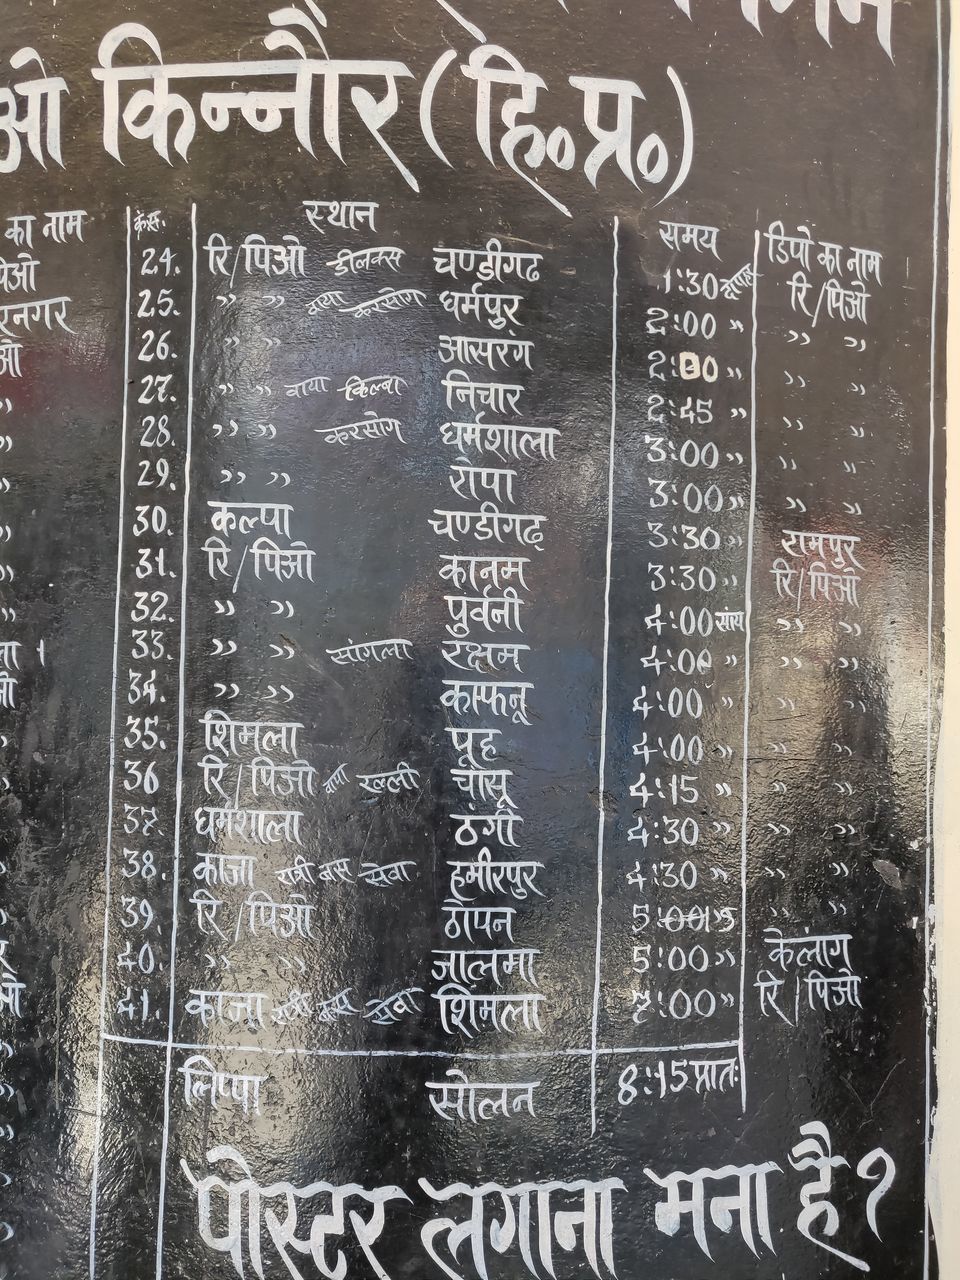 ओ किन्नौर (हि॰प्र॰)
का नाम क्र.स. स्थान समय डिपो का नाम
पिओ 24. रि/पिओ डीलक्स चण्डीगढ 1:30 रि/पिओ
रनगर 25. ,, ,, वाया करसोग धर्मपुर 2:00 ,, ,, ,,
ओ 26. ,, ,, आसरंग 2:00 ,, ,, ,,
,, 27. ,, ,, वाया किल्बा निचार 2:45 ,, ,, ,,
,, 28. ,, ,, करसोग धर्मशाला 3:00 ,, ,, ,,
,, 29. ,, ,, रोपा 3:00 ,, ,, ,,
,, 30. कल्पा चण्डीगढ़ 3:30 ,, रामपुर
,, 31. रि/पिओ कानम 3:30 ,, रि/पिओ
,, 32. ,, ,, पुर्वनी 4:00 सांय ,, ,,
ला 33. ,, ,, सांगला रक्षम 4:00 ,, ,, ,,
ओ 34. ,, ,, काफनू 4:00 ,, ,, ,,
,, 35. शिमला पूह 4:00 ,, ,, ,,
,, 36 रि/पिओ वाया रल्ली चांसू 4:15 ,, ,, ,,
37. धर्मशाला ठंगी 4:30 ,, ,, ,,
,, 38. काजा रात्री बस सेवा हमीरपुर 4:30 ,, ,, ,,
,, 39. रि/पिओ ठोपन 5:00 ,, ,, ,,
40. ,, ,, जालमा 5:00 ,, केलांग
ओ 41. काजा रात्री बस सेवा शिमला 7:00 ,, रि/पिओ
लिप्पा सोलन 8:15 प्रातः
पोस्टर लगाना मना है ?